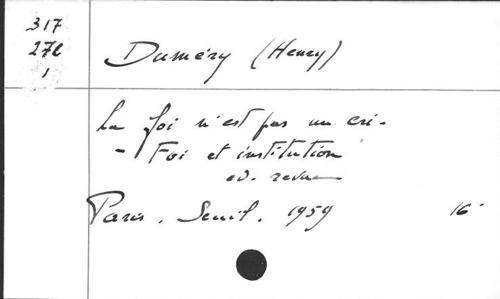 317
272
1
Duméry (Henry)
La foi n'est pas un cri -
- Foi et institution
ed. revue
Paris. Seuil. 1959 16